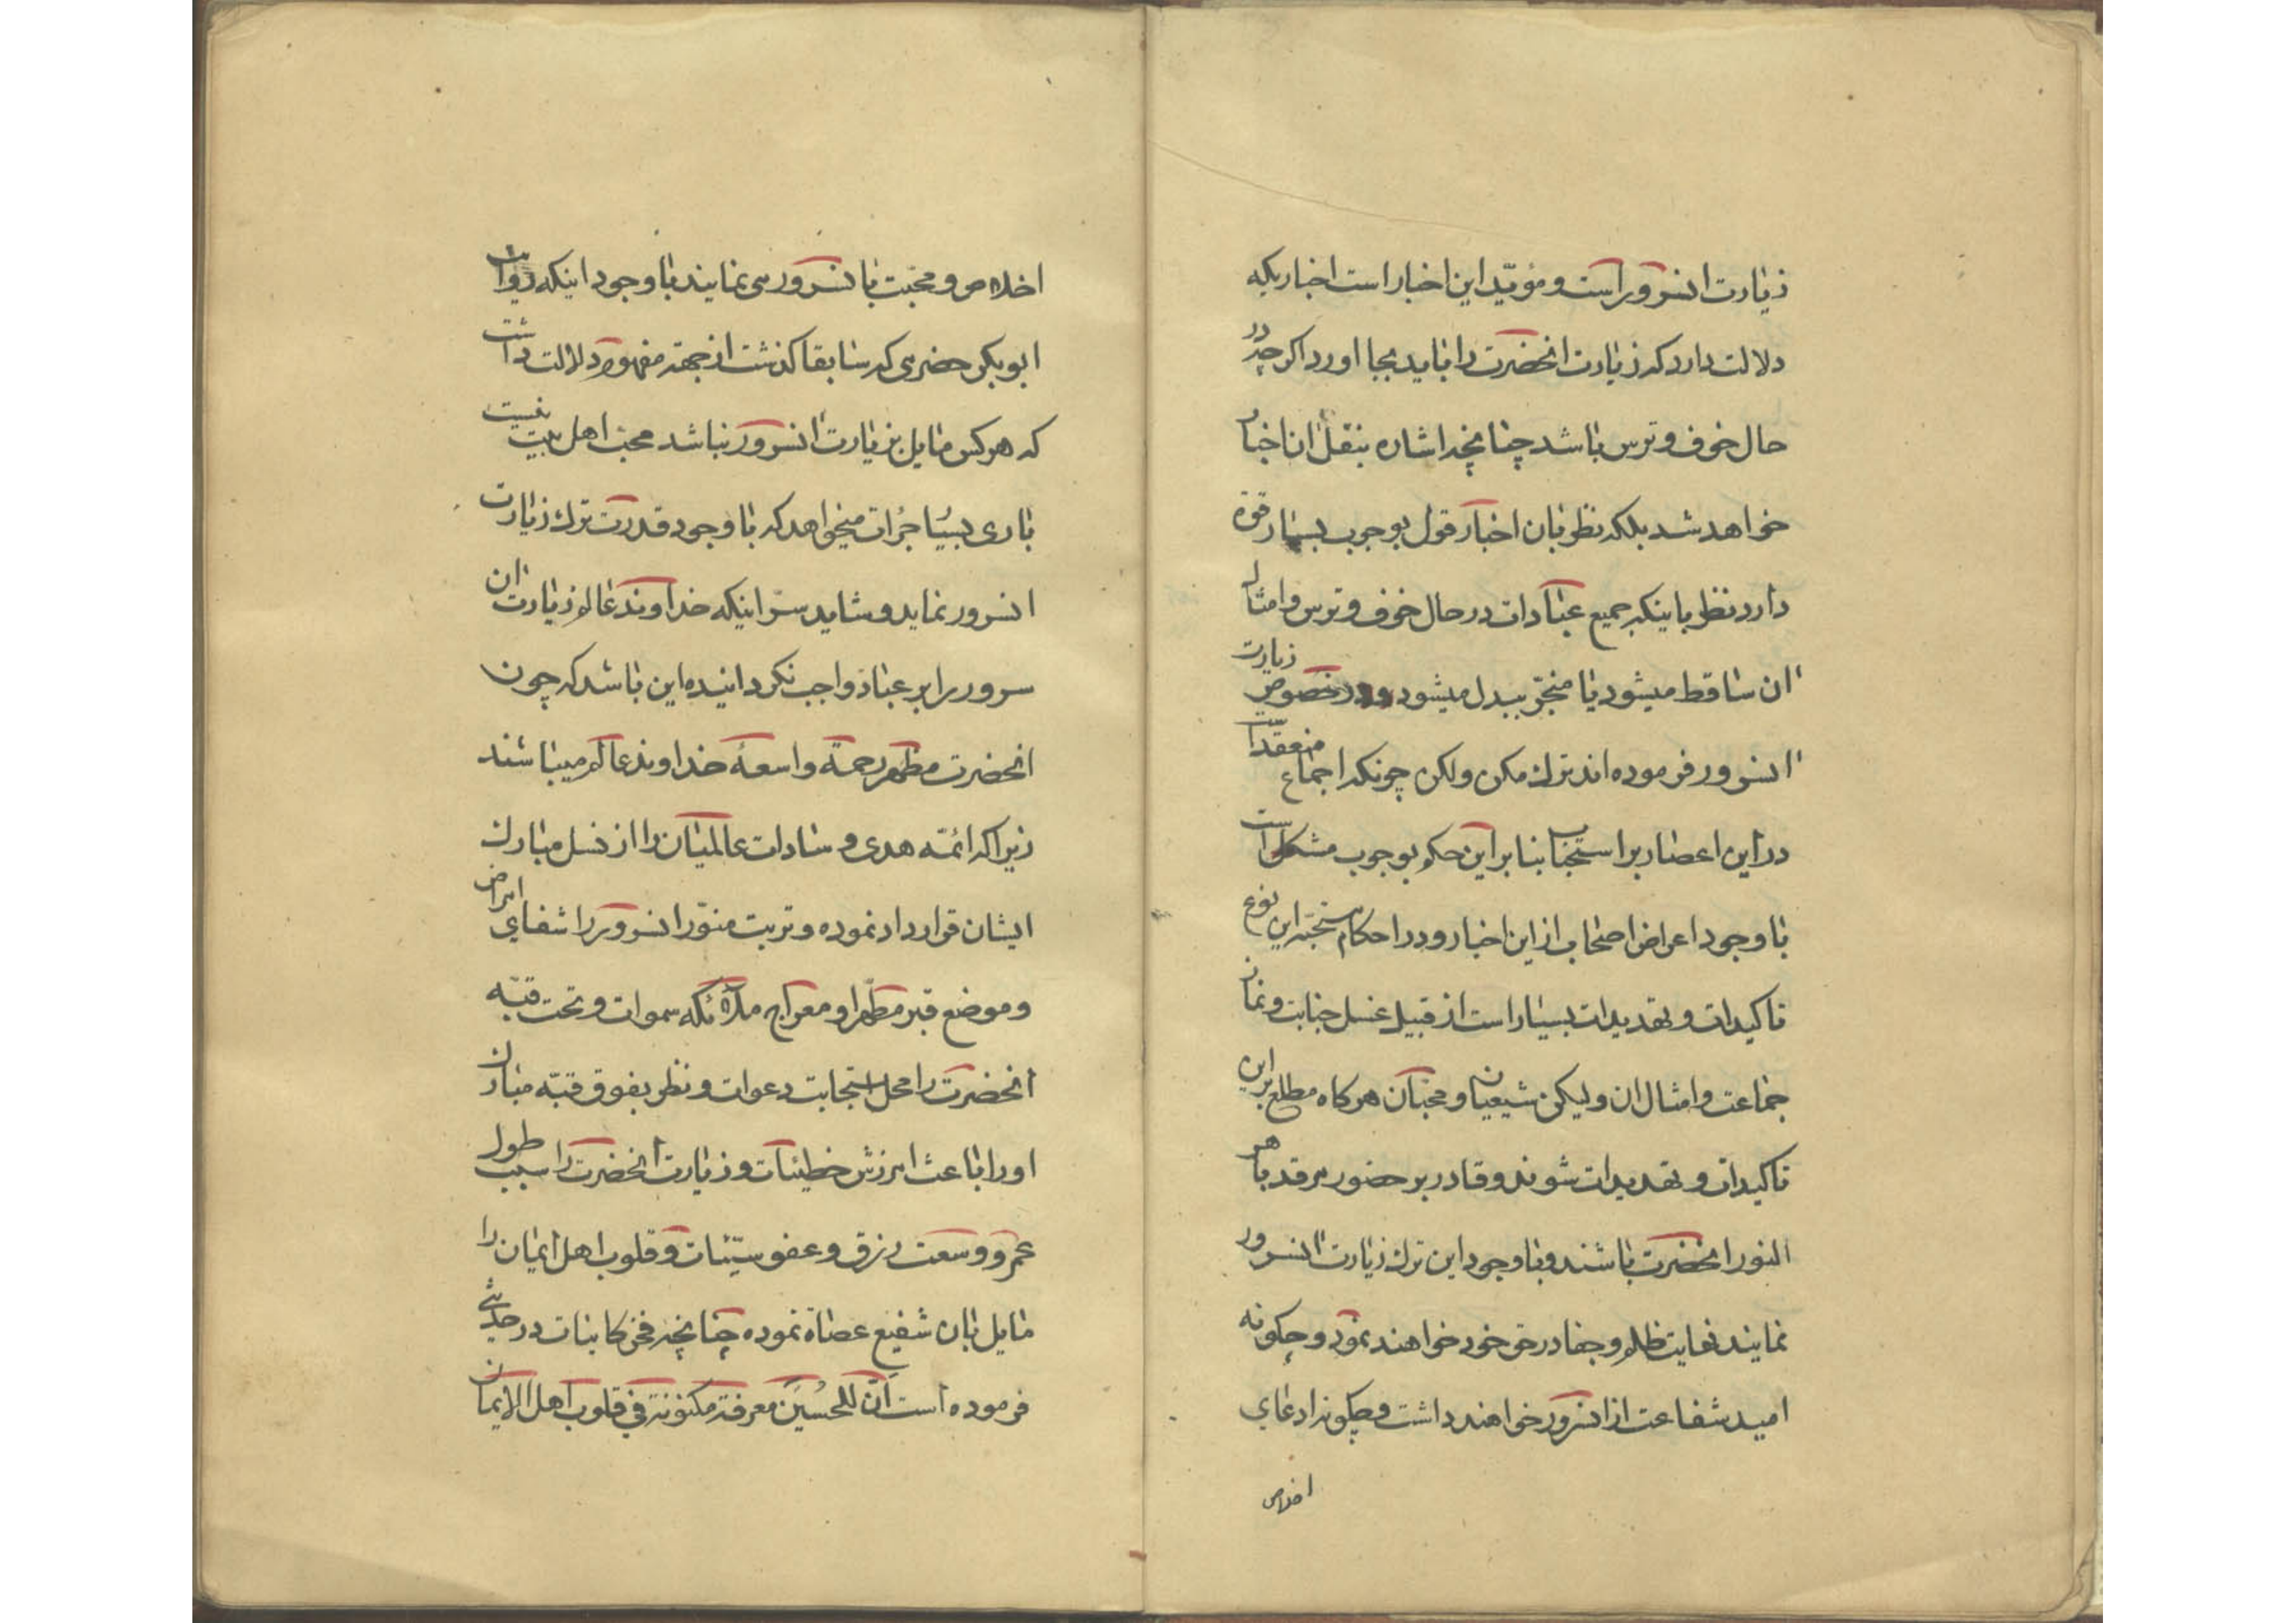 زیارت انسرور است و مؤیّد این اخبار است اخباریکه
دلالت دارد که زیارت انحضرت را باید بجا اورد اکرچه در
حال خوف و ترس باشد چنانچه اشاره بنقل ان اخبار
خواهد شد بلکه نظر بان اخبار قول بوجوب بسیار قوة
دارد نظر باینکه جمیع عبادات در حال خوف و ترس و امثال
ان ساقط میشود یا منجّر ببدل میشود و در خصوص زیارت
انسرور فرموده اند ترك مکن ولکن چونکه اجماع منعقد است
در این اعصار بر استحباب بنا بر این حکم بوجوب مشکل است
با وجود اعراض اصحاب از این اخبار و در احکام مستحبّه این نوع
تاکیدات و تهدیدات بسیار است از قبیل غسل جنابت و نماز
جماعت و امثال ان ولیکن شیعیان و محبّان هرکاه مطلع بر این
تاکیدات و تهدیدات شوند و قادر بر حضور مرقد باهر
النور انحضرت باشند و با وجود این ترك زیارت انسرور
نمایند بغایت ظلم و جفا در حق خود خواهند نمود و چکونه
امید شفاعت از انسرور خواهند داشت و چکونه ادعای
اخلاص
اخلاص و محبّت با انسرور می نمایند با وجود اینکه روایت
ابوبکر حضرمی که سابقا کذشت از جهة مفهوم دلالت داشت
که هرکس مایل بزیارت انسرور نباشد محبّ اهل بیت نیست
باری بسیا جرُات میخواهد که با وجود قدرت ترك زیارت
انسرور نماید و شاید سرّ اینکه خداوند عالم زیارت ان
سرور را بر عباد واجب نکردانیده این باشد که چون
انحضرت مظهر رحمة واسعهٔ خداوند عالم میباشند
زیرا که ائمّه هدی و سادات عالمیان را از نسل مبارك
ایشان قرار داد نموده و تربت منوّر انسرور را شفای امراض
و موضع قبر مطهّر او معراج ملائکه سموات و تحت قبّه
انحضرت را محل استجابت دعوات و نظر بفوق قبّه مبارك
او را باعث امرزش خطیئات و زیارت انحضرت را سبب طول
عمر و وسعت رزق و عفو سیّئات و قلوب اهل ایمان را
مایل بان شفیع عصاة نموده چنانچه فخر کاینات در حدیثی
فرموده است انّ للحُسَین معرفة مکنونة فی قلوب اهل الایمان